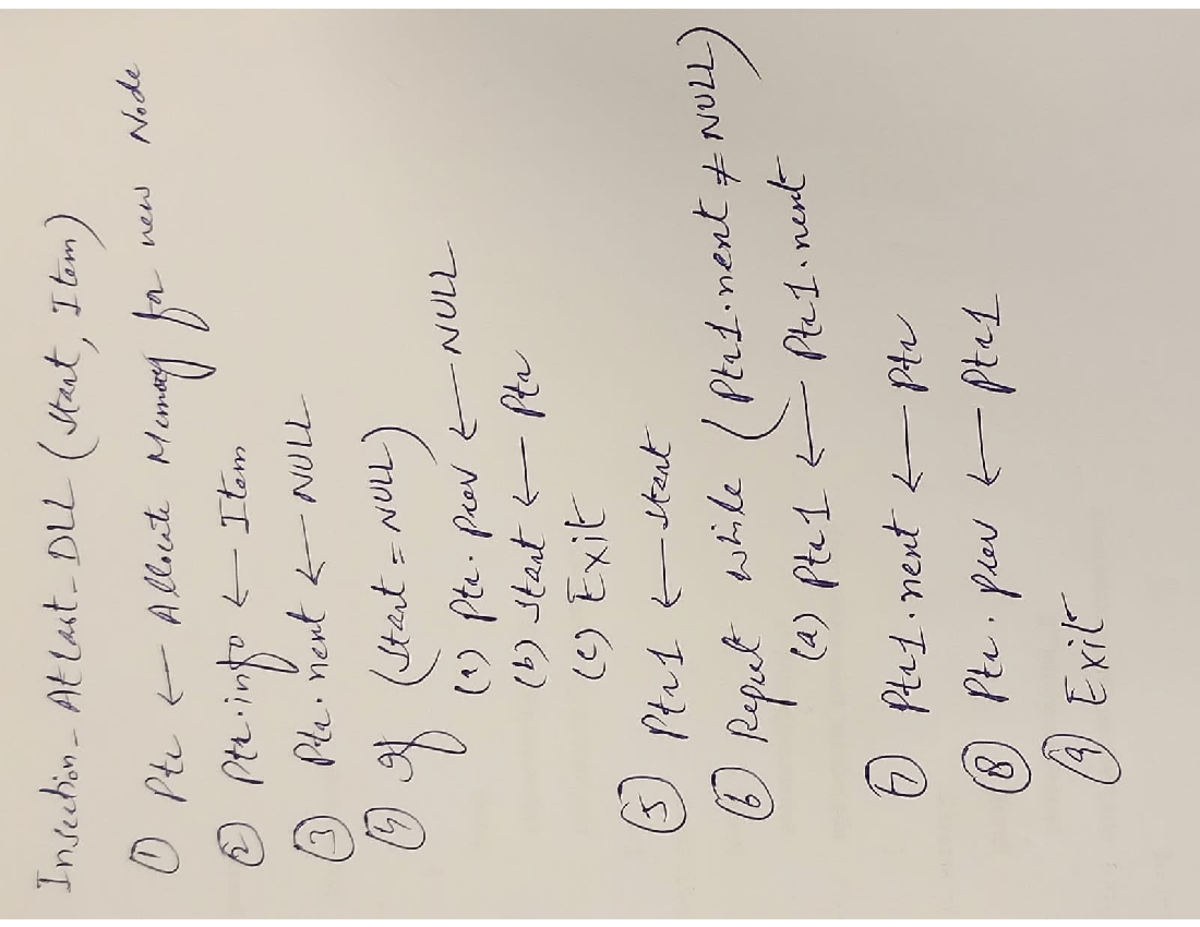 Insertion_AtLast_DLL (Start, Item)
① Ptr ← Allocate Memory for new Node
② Ptr.info ← Item
③ Ptr.next ← NULL
④ If (Start = NULL)
(a) Ptr.prev ← NULL
(b) Start ← Ptr
(c) Exit
⑤ Ptr1 ← Start
⑥ Repeat while (Ptr1.next ≠ NULL)
(a) Ptr1 ← Ptr1.next
⑦ Ptr1.next ← Ptr
⑧ Ptr.prev ← Ptr1
⑨ Exit